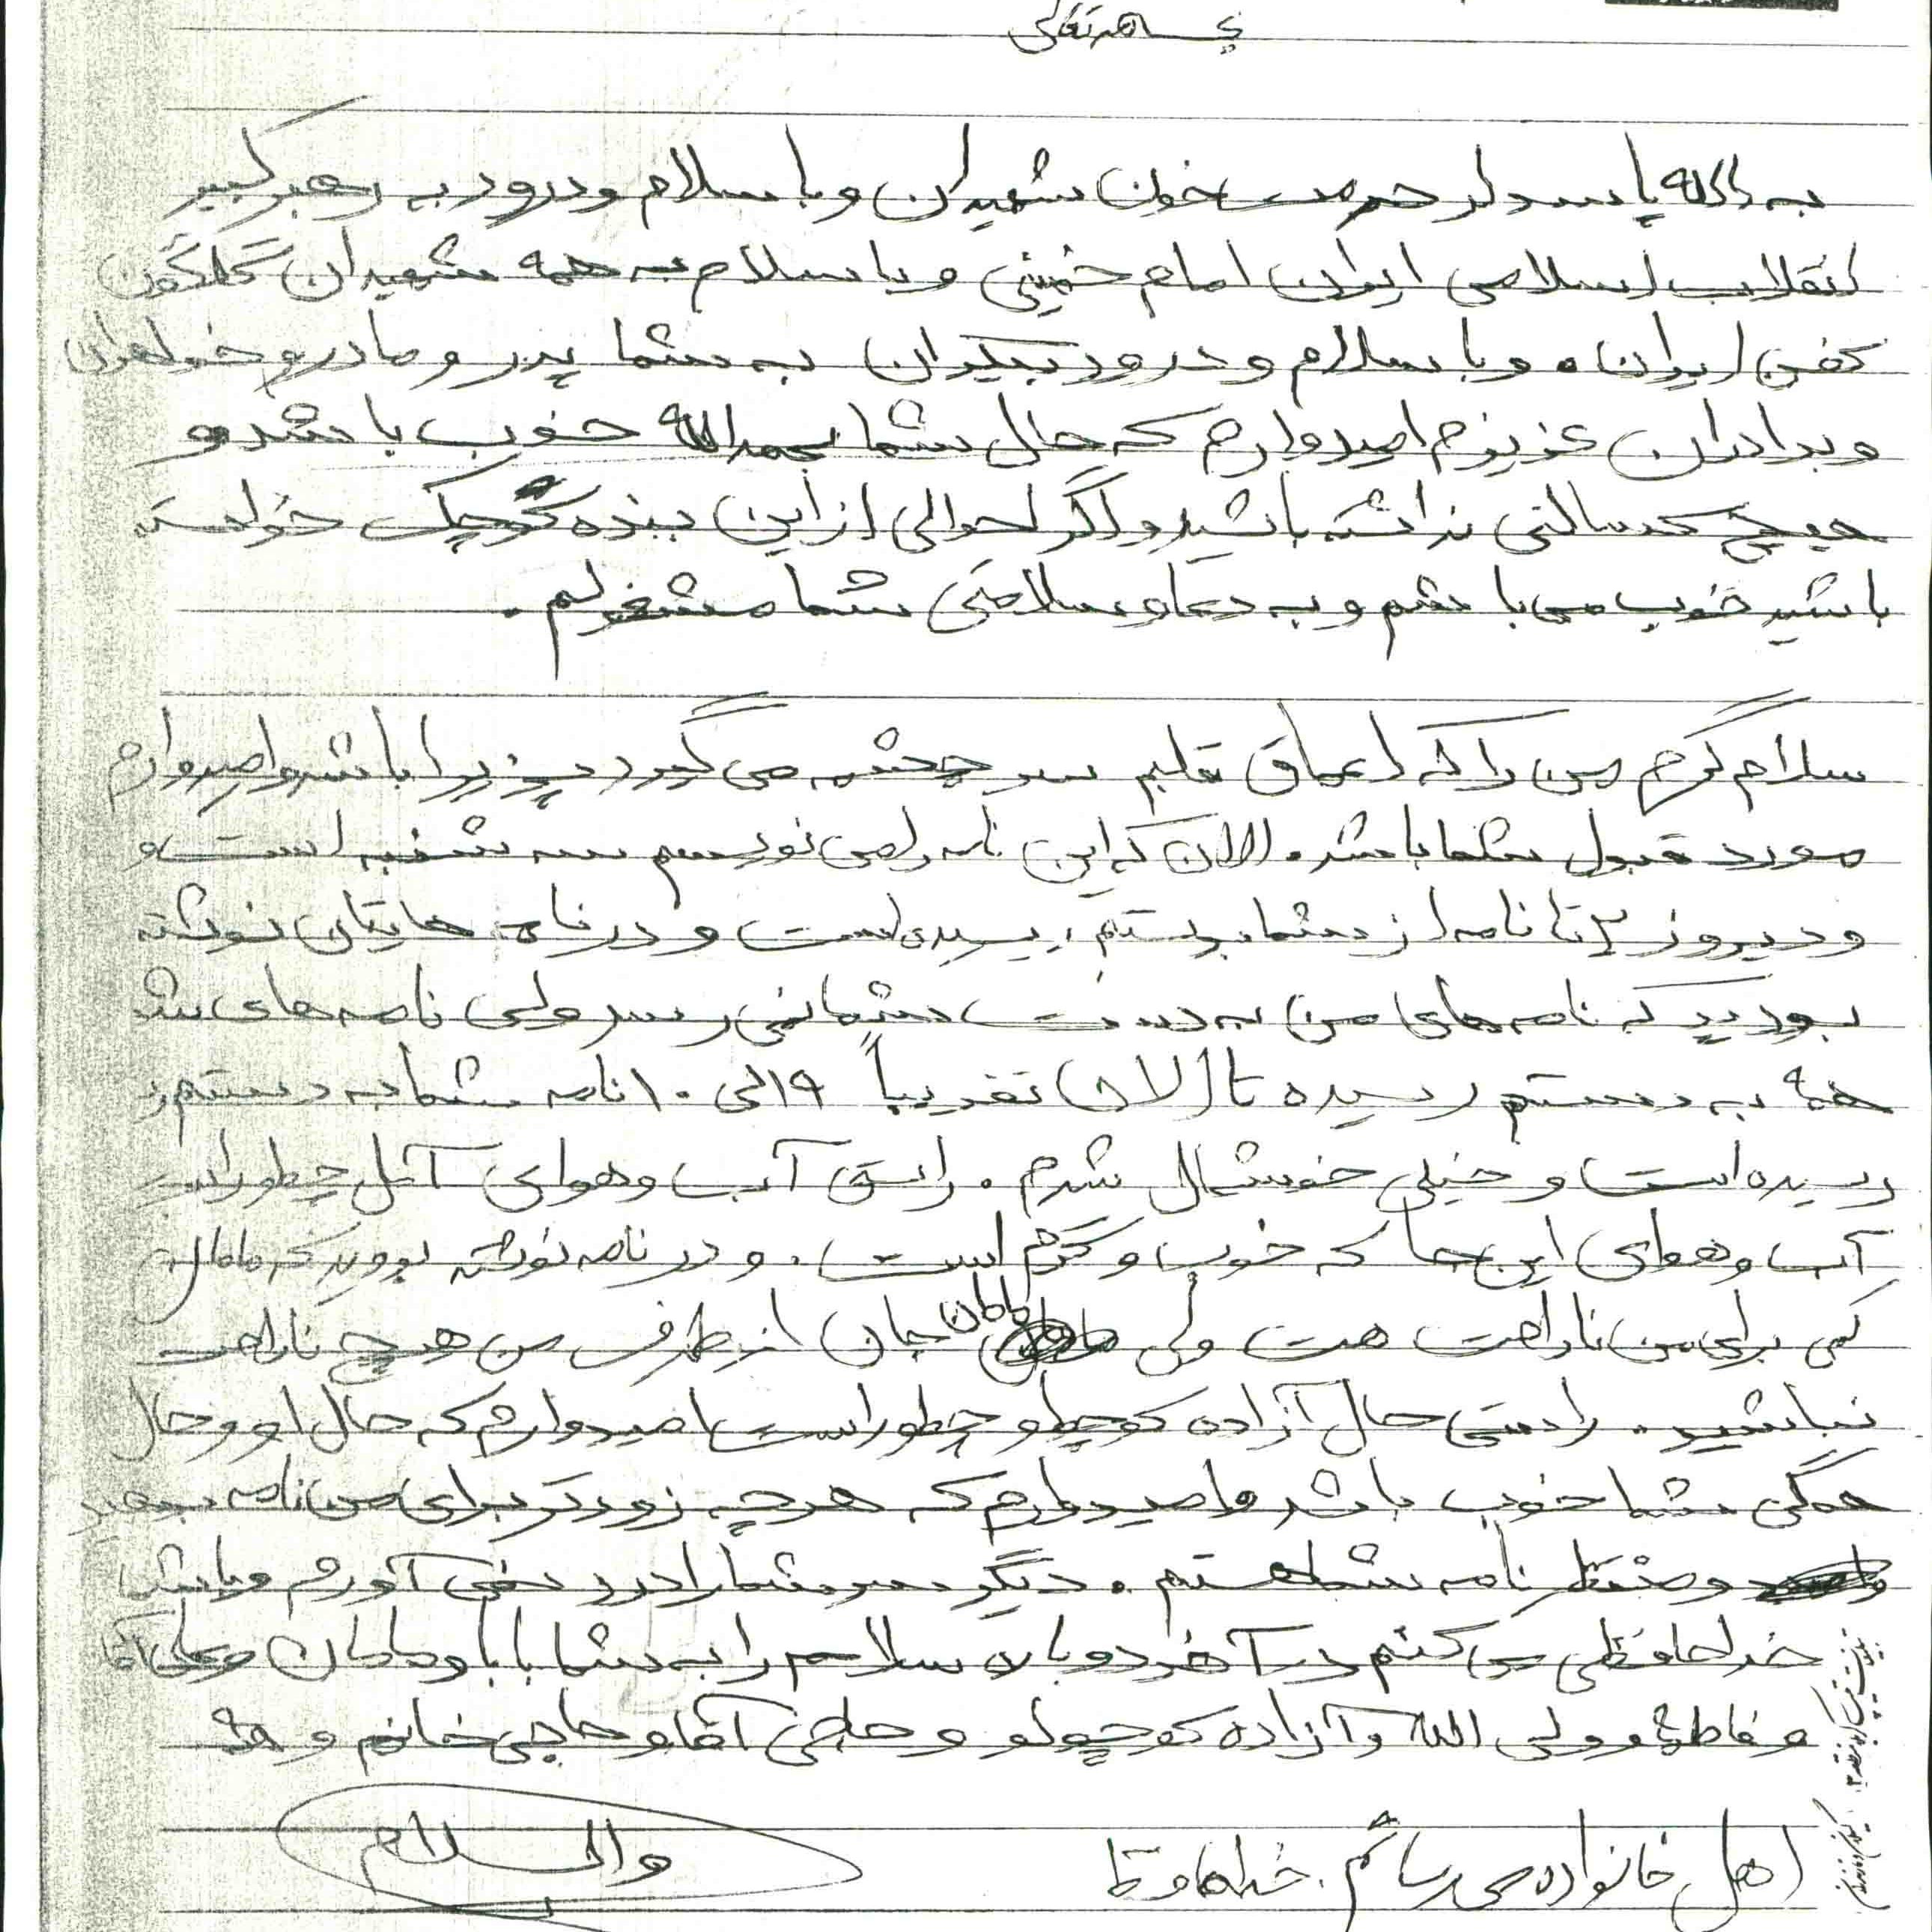 بسمه تعالی
به الله پاسدار حرمت خون شهیدان و با سلام و درود به رهبر کبیر
انقلاب اسلامی ایران امام خمینی و با سلام به همه شهیدان گلگون
کفن ایران. و با سلام و درود بیکران به شما پدر و مادر و خواهران
و برادران عزیزم امیدوارم که حال شما بحمدالله خوب باشد و
هیچ کسالتی نداشته باشید و اگر احوالی از این بنده کوچک خواسته
باشید خوب می باشم و به دعا و سلامتی شما مشغولم.
سلام گرم من را که اعماق قلبم سرچشمه می گیرد پذیرا باشد و امیدوارم
مورد قبول شما باشد. الان که این نامه را می نویسم سه شنبه است و
و دیروز تا نامه از شما بدستم رسیده است و در نامه هایتان نوشته
بودید که نامه های من به دست شما نمی رسد ولی نامه های شما
همه به دستم رسیده تا الان تقریباً ۹ الی ۱۰ نامه شما به دستم ر
رسیده است و خیلی خوشحال شدم. راستی آب و هوای آمل چطور است
آب و هوای این جا که خوب و گرم است. و در نامه نوشته بودید که مامان
کمی برای من ناراحت هست ولی مامان جان از طرف من هیچ ناراحت
نباشید. راستی حال آزاده کوچولو چطور است امیدوارم که حال او و حال
همگی شما خوب باشد و امیدوارم که هر چه زودتر برای من نامه بدهید
و منتظر نامه شما هستم. دیگر سر شما را درد نمی آورم و باشما
خداحافظی می کنم در آخر دوباره سلامم را به شما بابا و مامان و علی آقا
و فاطمه و ولی الله و آزاده کوچولو و حاجی آقا و حاجی خانم و همه
اهل خانواده می رسانم. خداحافظ
والسلام